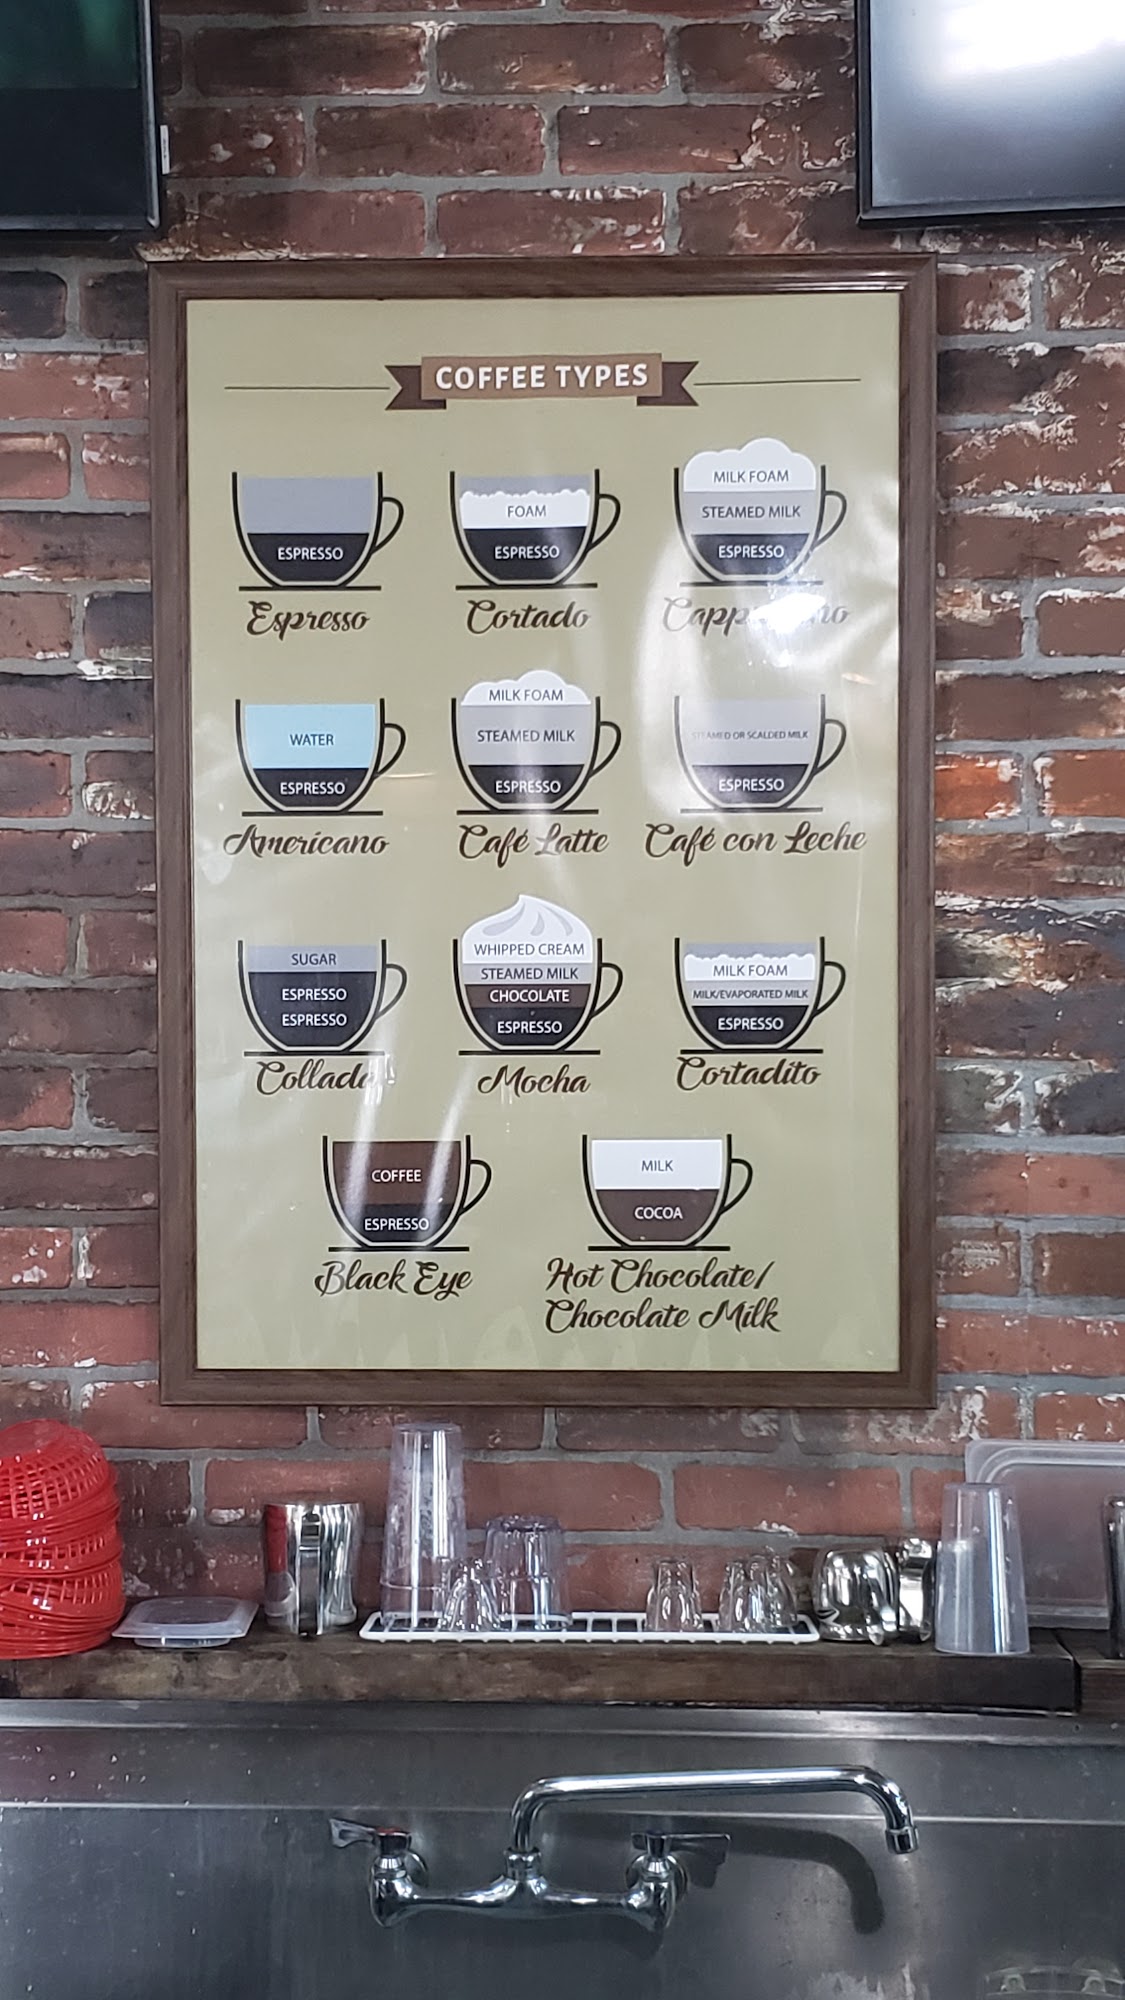 COFFEE TYPES
ESPRESSO
Espresso
FOAM
ESPRESSO
Cortado
MILK FOAM
STEAMED MILK
ESPRESSO
Cappuccino
WATER
ESPRESSO
Americano
MILK FOAM
STEAMED MILK
ESPRESSO
Café Latte
STEAMED OR SCALDED MILK
ESPRESSO
Café con Leche
SUGAR
ESPRESSO
ESPRESSO
WHIPPED CREAM
STEAMED MILK
CHOCOLATE
ESPRESSO
Mocha
MILK FOAM
MILK/EVAPORATED MILK
ESPRESSO
Cortadito
COFFEE
ESPRESSO
Black Eye
MILK
COCOA
Hot Chocolate/
Chocolate Milk